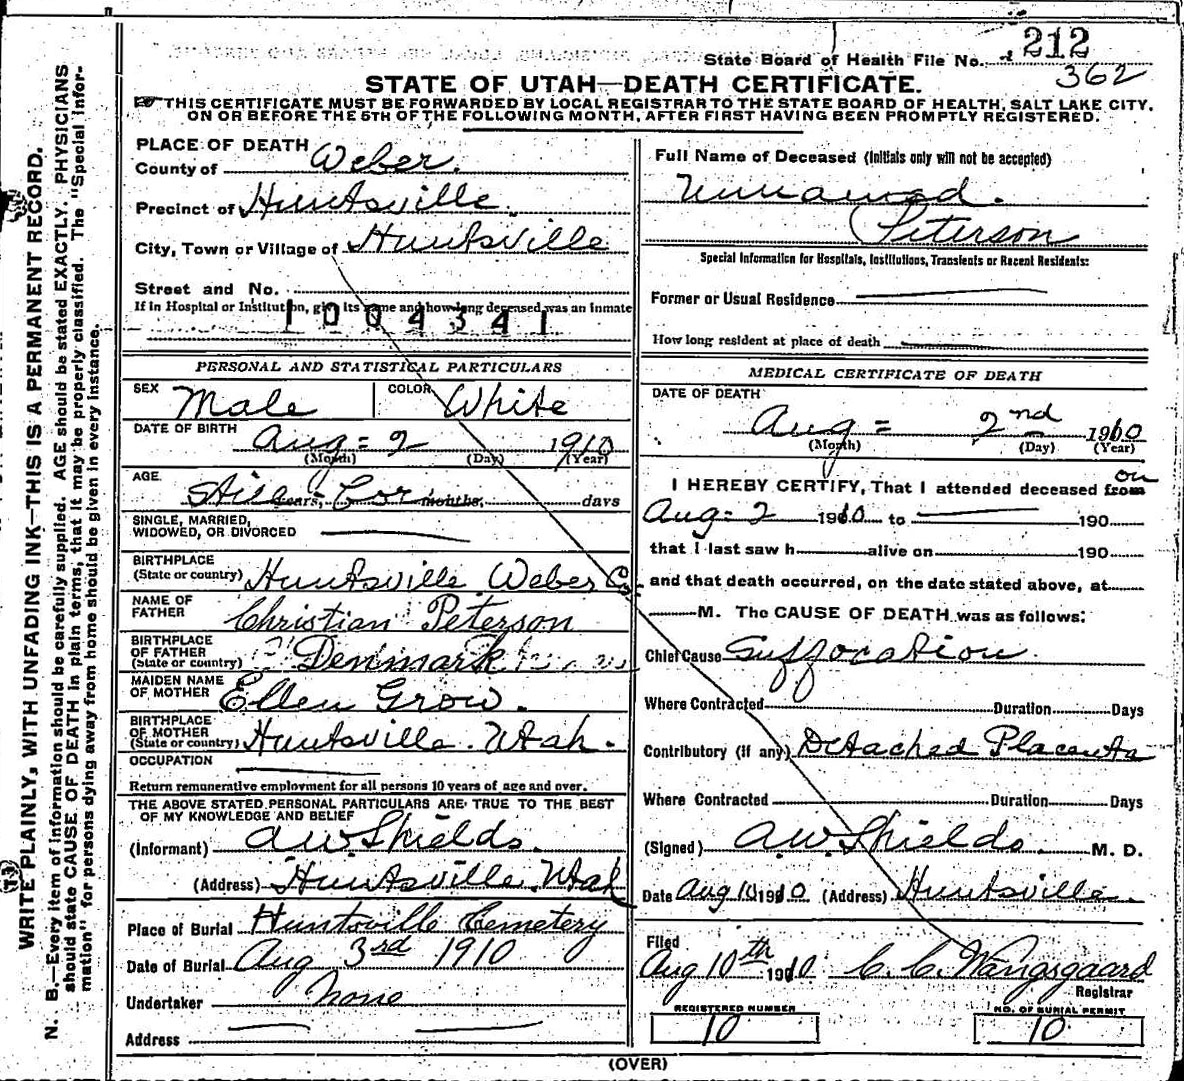 WRITE PLAINLY, WITH UNFADING INK—THIS IS A PERMANENT RECORD.
N. B.—Every item of information should be carefully supplied. AGE should be stated EXACTLY. PHYSICIANS
should state CAUSE OF DEATH in plain terms, that it may be properly classified. The "Special Infor-
mation" for persons dying away from home should be given in every instance.
State Board of Health File No. 212
362
STATE OF UTAH—DEATH CERTIFICATE.
THIS CERTIFICATE MUST BE FORWARDED BY LOCAL REGISTRAR TO THE STATE BOARD OF HEALTH, SALT LAKE CITY,
ON OR BEFORE THE 5TH OF THE FOLLOWING MONTH, AFTER FIRST HAVING BEEN PROMPTLY REGISTERED.
PLACE OF DEATH
County of Weber.
Precinct of Huntsville.
City, Town or Village of Huntsville
Street and No.
If in Hospital or Institution, give its name and how long deceased was an inmate
1004341
PERSONAL AND STATISTICAL PARTICULARS
SEX Male COLOR White
DATE OF BIRTH Aug = 2 1910
(Month) (Day) (Year)
AGE Still years, Bor months, days
SINGLE, MARRIED,
WIDOWED, OR DIVORCED
BIRTHPLACE
(State or country) Huntsville Weber Co.
NAME OF
FATHER Christian Peterson
BIRTHPLACE
OF FATHER
(State or country) Denmark
MAIDEN NAME
OF MOTHER Ellen Grow.
BIRTHPLACE
OF MOTHER
(State or country) Huntsville. Utah.
OCCUPATION
Return remunerative employment for all persons 10 years of age and over.
THE ABOVE STATED PERSONAL PARTICULARS ARE TRUE TO THE BEST
OF MY KNOWLEDGE AND BELIEF
(Informant) A.W. Shields.
(Address) Huntsville. Utah
Place of Burial Huntsville Cemetery
Date of Burial Aug 3rd 1910
Undertaker None
Address
Full Name of Deceased (Initials only will not be accepted)
Unnamed.
Peterson
Special Information for Hospitals, Institutions, Transients or Recent Residents:
Former or Usual Residence
How long resident at place of death
MEDICAL CERTIFICATE OF DEATH
DATE OF DEATH
Aug = 2nd 1910
(Month) (Day) (Year)
I HEREBY CERTIFY, That I attended deceased from on
Aug = 2 1910 to 190
that I last saw h alive on 190
and that death occurred, on the date stated above, at
M. The CAUSE OF DEATH was as follows:
Chief Cause Suffocation.
Where Contracted Duration Days
Contributory (if any) Detached Placenta
Where Contracted Duration Days
(Signed) A.W. Shields. M. D.
Date Aug 10 1910 (Address) Huntsville.
Filed
Aug 10th 1910 C. C. Wangsgaard
Registrar
REGISTERED NUMBER
10
NO. OF BURIAL PERMIT
10
(OVER)